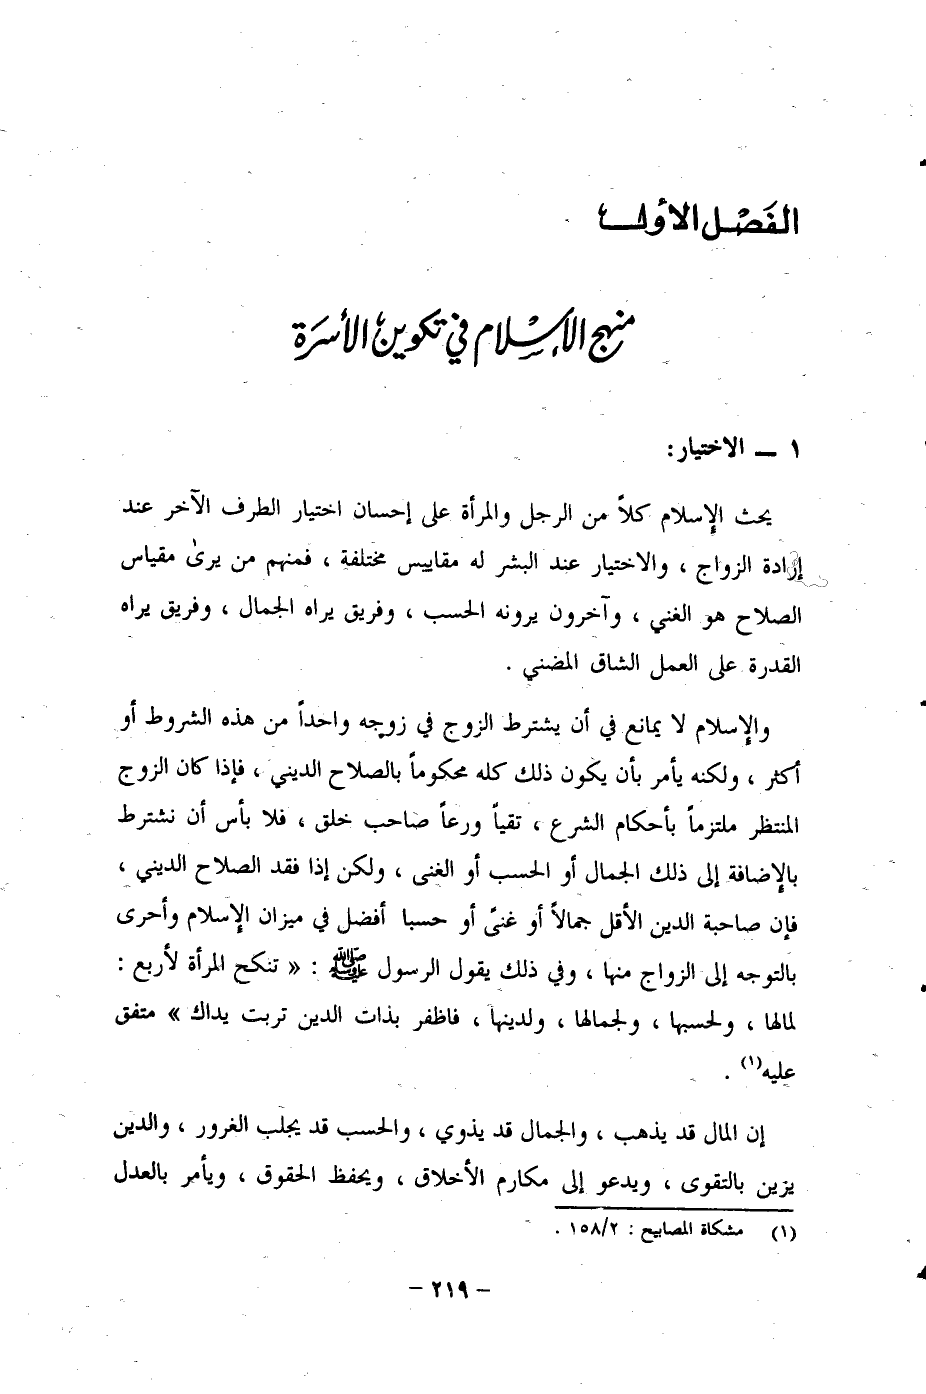 الفَصْل الأول
منهج الإسْلام في تكوين الأسرَة
١ ــ الاختيار :
يحث الإسلام كلاً من الرجل والمرأة على إحسان اختيار الطرف الآخر عند
إرادة الزواج ، والاختيار عند البشر له مقاييس مختلفة ، فمنهم من يرىٰ مقياس
الصلاح هو الغني ، وآخرون يرونه الحسب ، وفريق يراه الجمال ، وفريق يراه
القدرة على العمل الشاق المضني .
والإسلام لا يمانع في أن يشترط الزوج في زوجه واحداً من هذه الشروط أو
أكثر ، ولكنه يأمر بأن يكون ذلك كله محكوماً بالصلاح الديني ، فإذا كان الزوج
المنتظر ملتزماً بأحكام الشرع ، تقياً ورعاً صاحب خلق ، فلا بأس أن نشترط
بالإضافة إلى ذلك الجمال أو الحسب أو الغنى ، ولكن إذا فقد الصلاح الديني ،
فإن صاحبة الدين الأقل جمالاً أو غنىً أو حسبا أفضل في ميزان الإسلام وأحرى
بالتوجه إلى الزواج منها ، وفي ذلك يقول الرسول ﷺ : « تنكح المرأة لأربع :
لمالها ، ولحسبها ، ولجمالها ، ولدينها ، فاظفر بذات الدين تربت يداك » متفق
عليه(١) .
إن المال قد يذهب ، والجمال قد يذوي ، والحسب قد يجلب الغرور ، والدين
يزين بالتقوى ، ويدعو إلى مكارم الأخلاق ، ويحفظ الحقوق ، ويأمر بالعدل
(١) مشكاة المصابيح : ١٥٨/٢ .
- ٢١٩ -